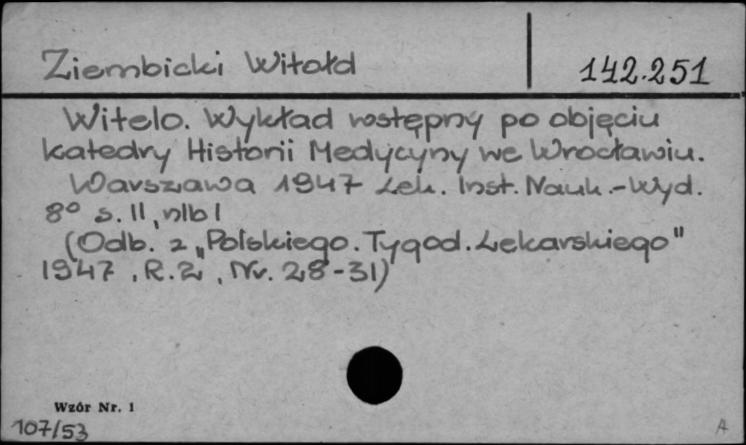 Ziembicki Witold
142.251
Witelo. Wykład wstępny po objęciu
katedry Historii Medycyny we Wrocławiu.
Warszawa 1947 Lek. Inst. Nauk.-Wyd.
8° s. 11, nlb 1
(Odb. z „Polskiego. Tygod. Lekarskiego"
1947, R. 2, Nr. 28-31)
Wzór Nr. 1
107/53
A